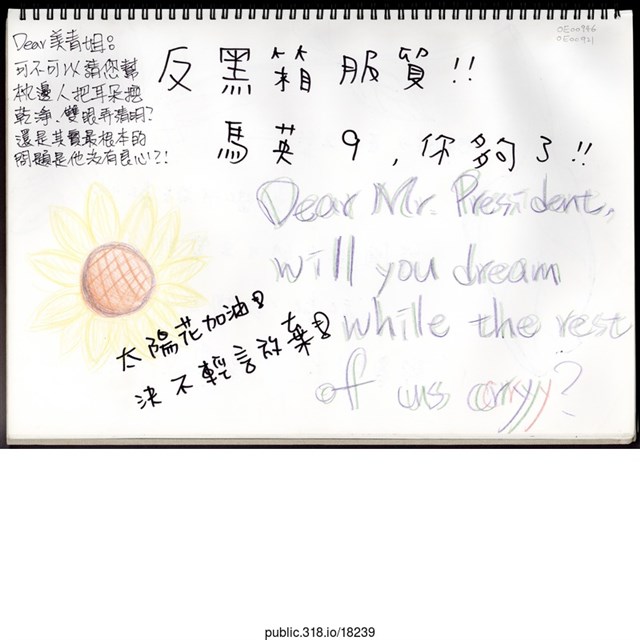 Dear 美青姐：
可不可以請您幫
枕邊人把耳朵挖
乾淨、雙眼弄清明？
還是其實最根本的
問題是他沒有良心？！
OE00946
OE00921
反黑箱服貿!!
馬英9，你夠了!!
Dear Mr. President,
will you dream
while the rest
of us cry?
太陽花加油
決不輕言放棄
public.318.io/18239